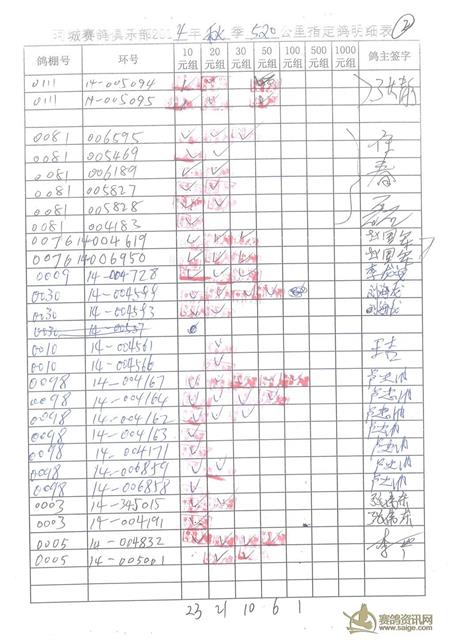 同城赛鸽俱乐部2014年秋季520公里指定鸽明细表 ②
鸽棚号 环号 10元组 20元组 30元组 50元组 100元组 300元组 500元组 1000元组 鸽主签字
0111 14-005094 ✓ ✓
0111 14-005095 ✓ ✓
0081 006595 ✓ ✓ ✓
0081 005469 ✓ ✓
0081 006189 ✓ ✓
0081 005827 ✓ ✓
0081 005828 ✓ ✓
0081 004183 ✓
0076 14004619 ✓ ✓ ✓
0076 14006950 ✓ ✓ ✓
0009 14-004728 ✓ ✓ ✓
0030 14-004599 ✓ ✓ ✓ ✓
0030 14-004593 ✓ ✓
0030 14-00537
0010 14-004561 ✓
0010 14-004566 ✓
0098 14-004167 ✓ ✓ ✓ ✓ ✓
0098 14-004164 ✓ ✓ ✓ ✓
0098 14-004162 ✓ ✓ ✓
0098 14-004163 ✓
0098 14-004171 ✓
0098 14-006859 ✓ ✓
0098 14-006858 ✓
0003 14-345015 ✓ ✓
0003 14-004191 ✓
0005 14-004832 ✓ ✓ ✓ ✓
0005 14-005001 ✓ ✓
23 21 10 6 1
赛鸽资讯网
www.saige.com